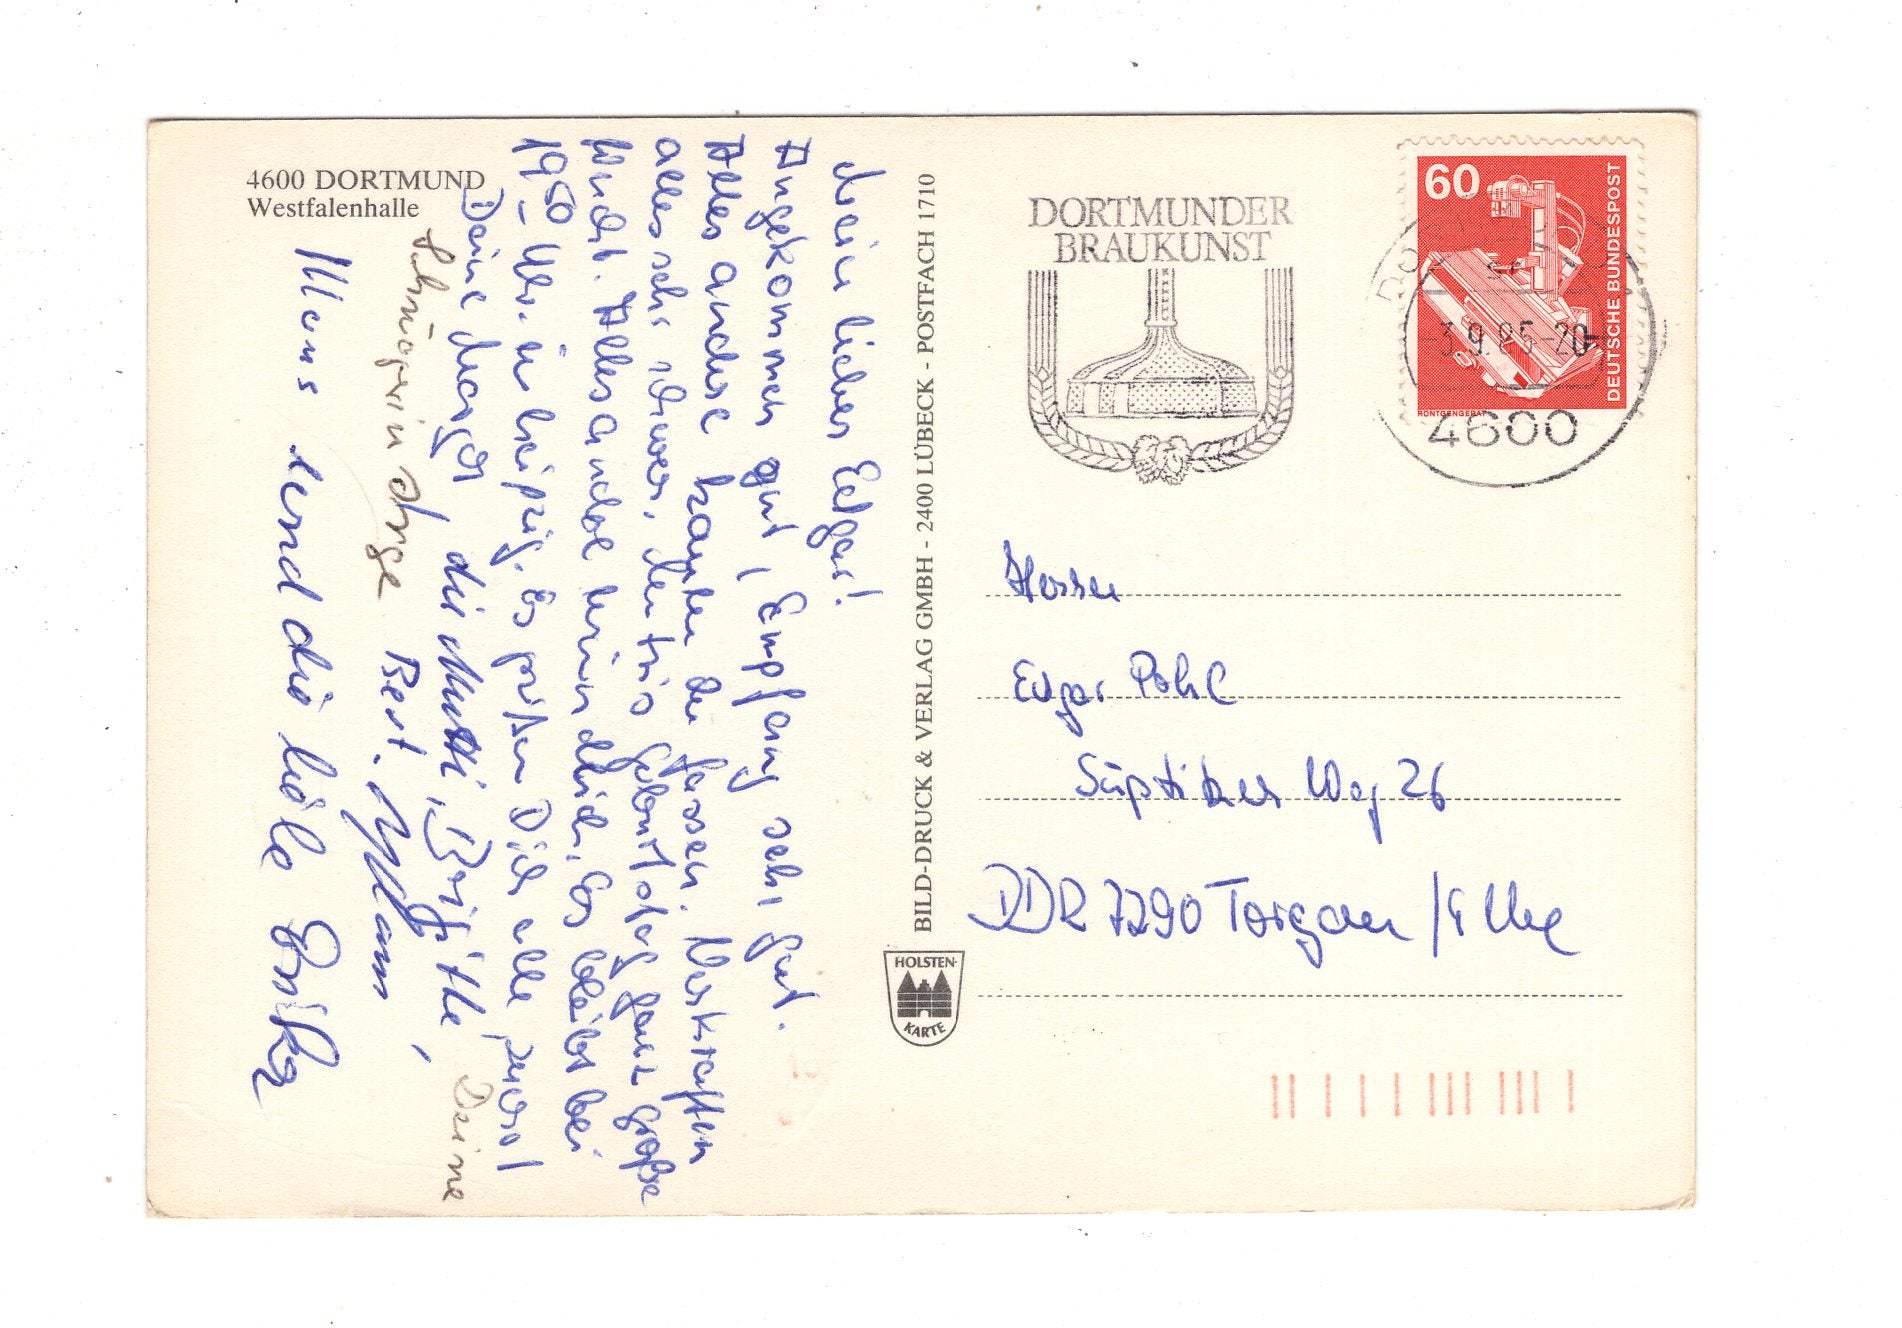 4600 DORTMUND
Westfalenhalle
Mein lieber Edgar!
Angekommen gut, Empfang sehr gut.
Alles andre kaum zu fassen. Verkraften
alles sehr schwer, Geburtstag ganz große
Wucht. Alles andre mündlich. Es bleibt bei
19.50 Uhr in Leipzig. Es grüßen Dich alle, zumal
Deine Margot, die Mutti, Brigitte, Deine
Schwägerin Inge
Klaus und die Erika
BILD-DRUCK & VERLAG GMBH - 2400 LÜBECK - POSTFACH 1710
HOLSTEN-
KARTE
DORTMUNDER
BRAUKUNST
60
DEUTSCHE BUNDESPOST
RÖNTGENGERÄT
-3.9.86-20
4600
Herrn
Edgar Pohl
Süptitzer Weg 26
DDR 7290 Torgau / Elbe